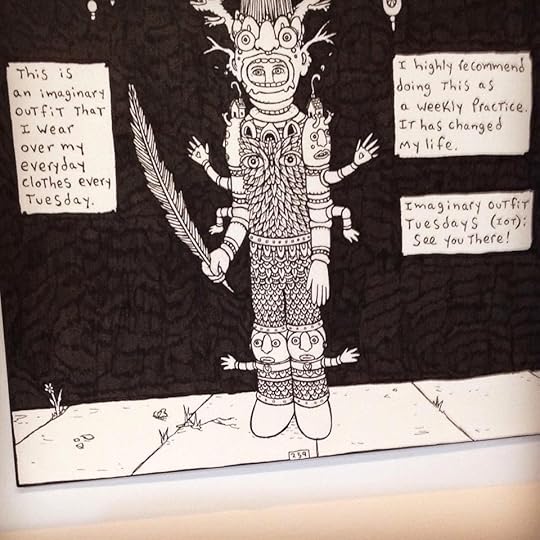 This is
an imaginary
outfit that
I wear
over my
everyday
clothes every
Tuesday.
I highly recommend
doing this as
a weekly practice.
It has changed
my life.
Imaginary outfit
Tuesdays (IOT):
See you there!
239